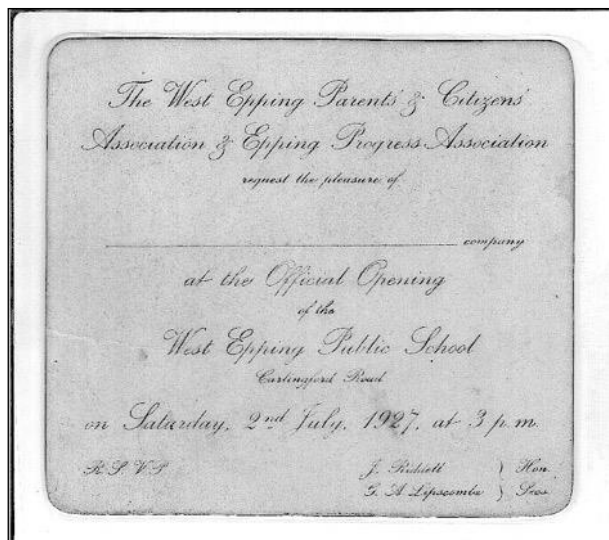 The West Epping Parents' & Citizens'
Association & Epping Progress Association
request the pleasure of
company
at the Official Opening
of the
West Epping Public School
Carlingford Road
on Saturday, 2nd July, 1927, at 3 p.m.
R.S.V.P. J. Riddell } Hon.
G. A. Lipscombe } Secs.